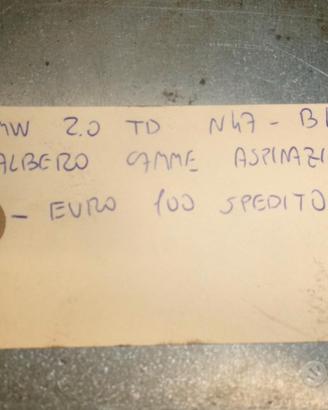 MW 2.0 TD N47 - B
ALBERO CAMME ASPIRAZI
- EURO 100 SPEDITO